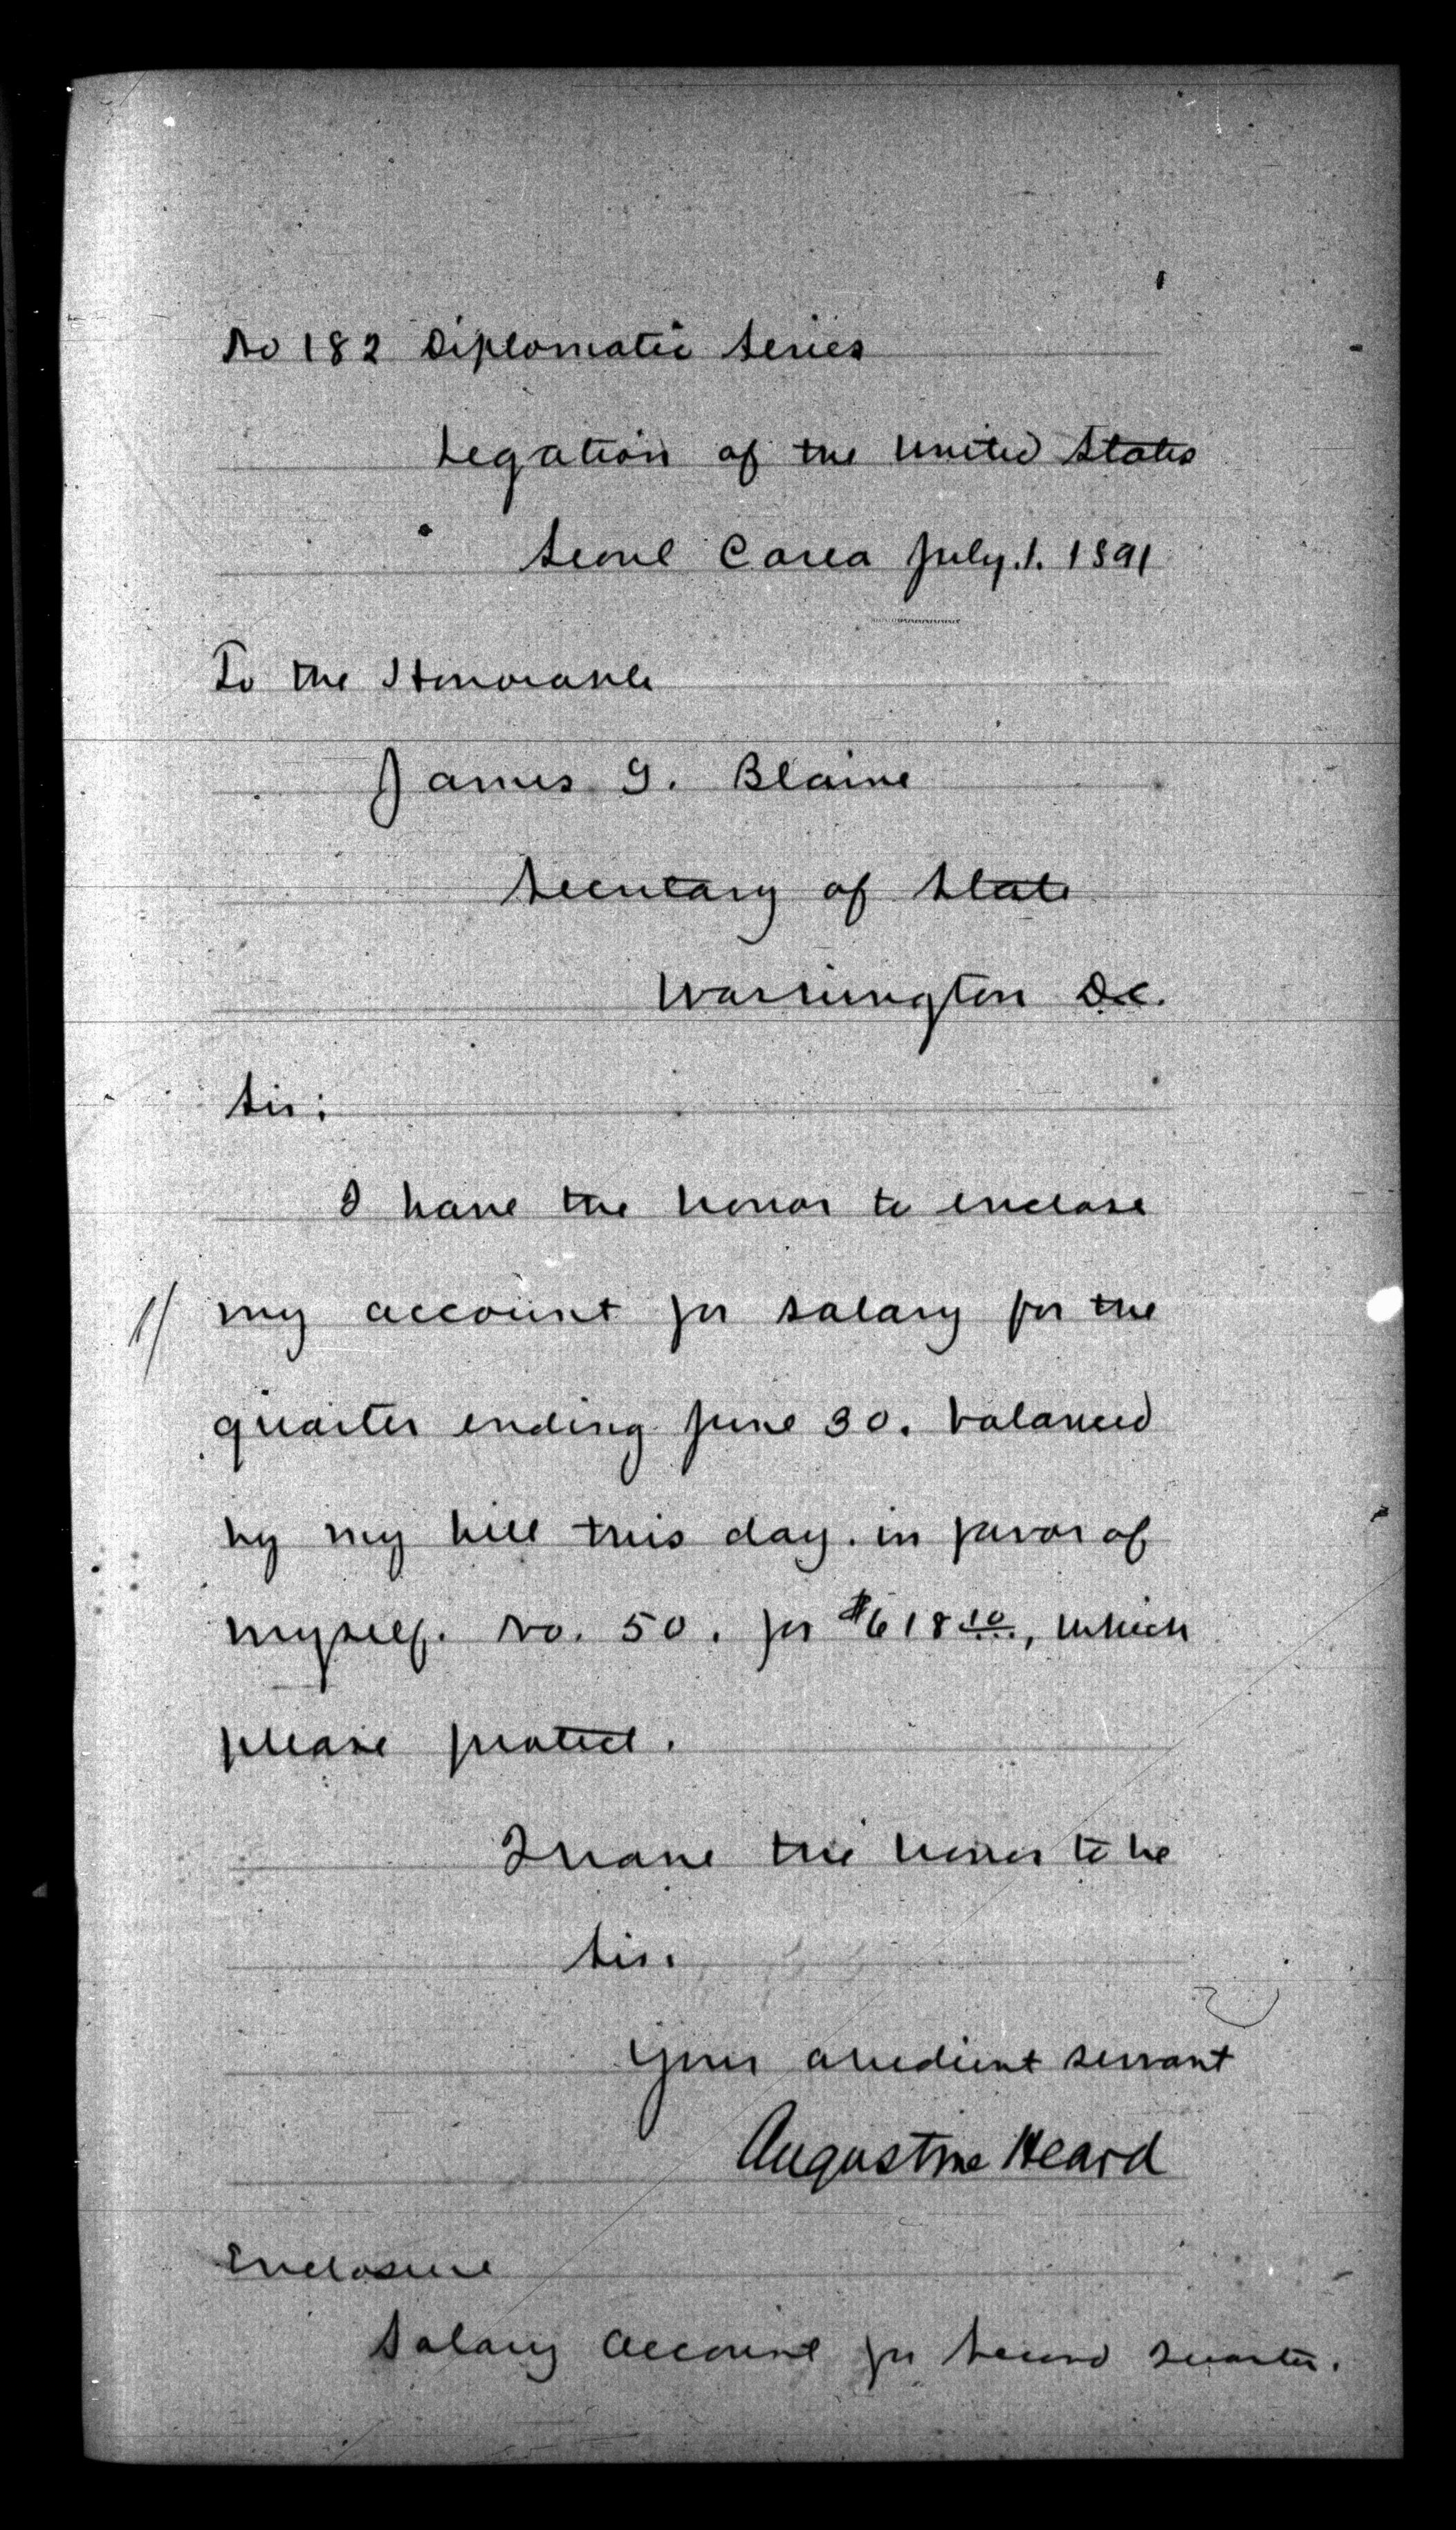 No 182 Diplomatic Series
Legation of the United States
Seoul Corea July. 1. 1891
To the Honorable
James G. Blaine
Secretary of State
Washington D.C.
Sir:
I have the honor to enclose
1/ my account for salary for the
quarter ending June 30. balanced
by my bill this day. in favor of
myself. No. 50. for $618 10/00, which
please protect.
I have the honor to be
Sir.
Your obedient servant
Augustine Heard
Enclosure
Salary Account for Second Quarter.